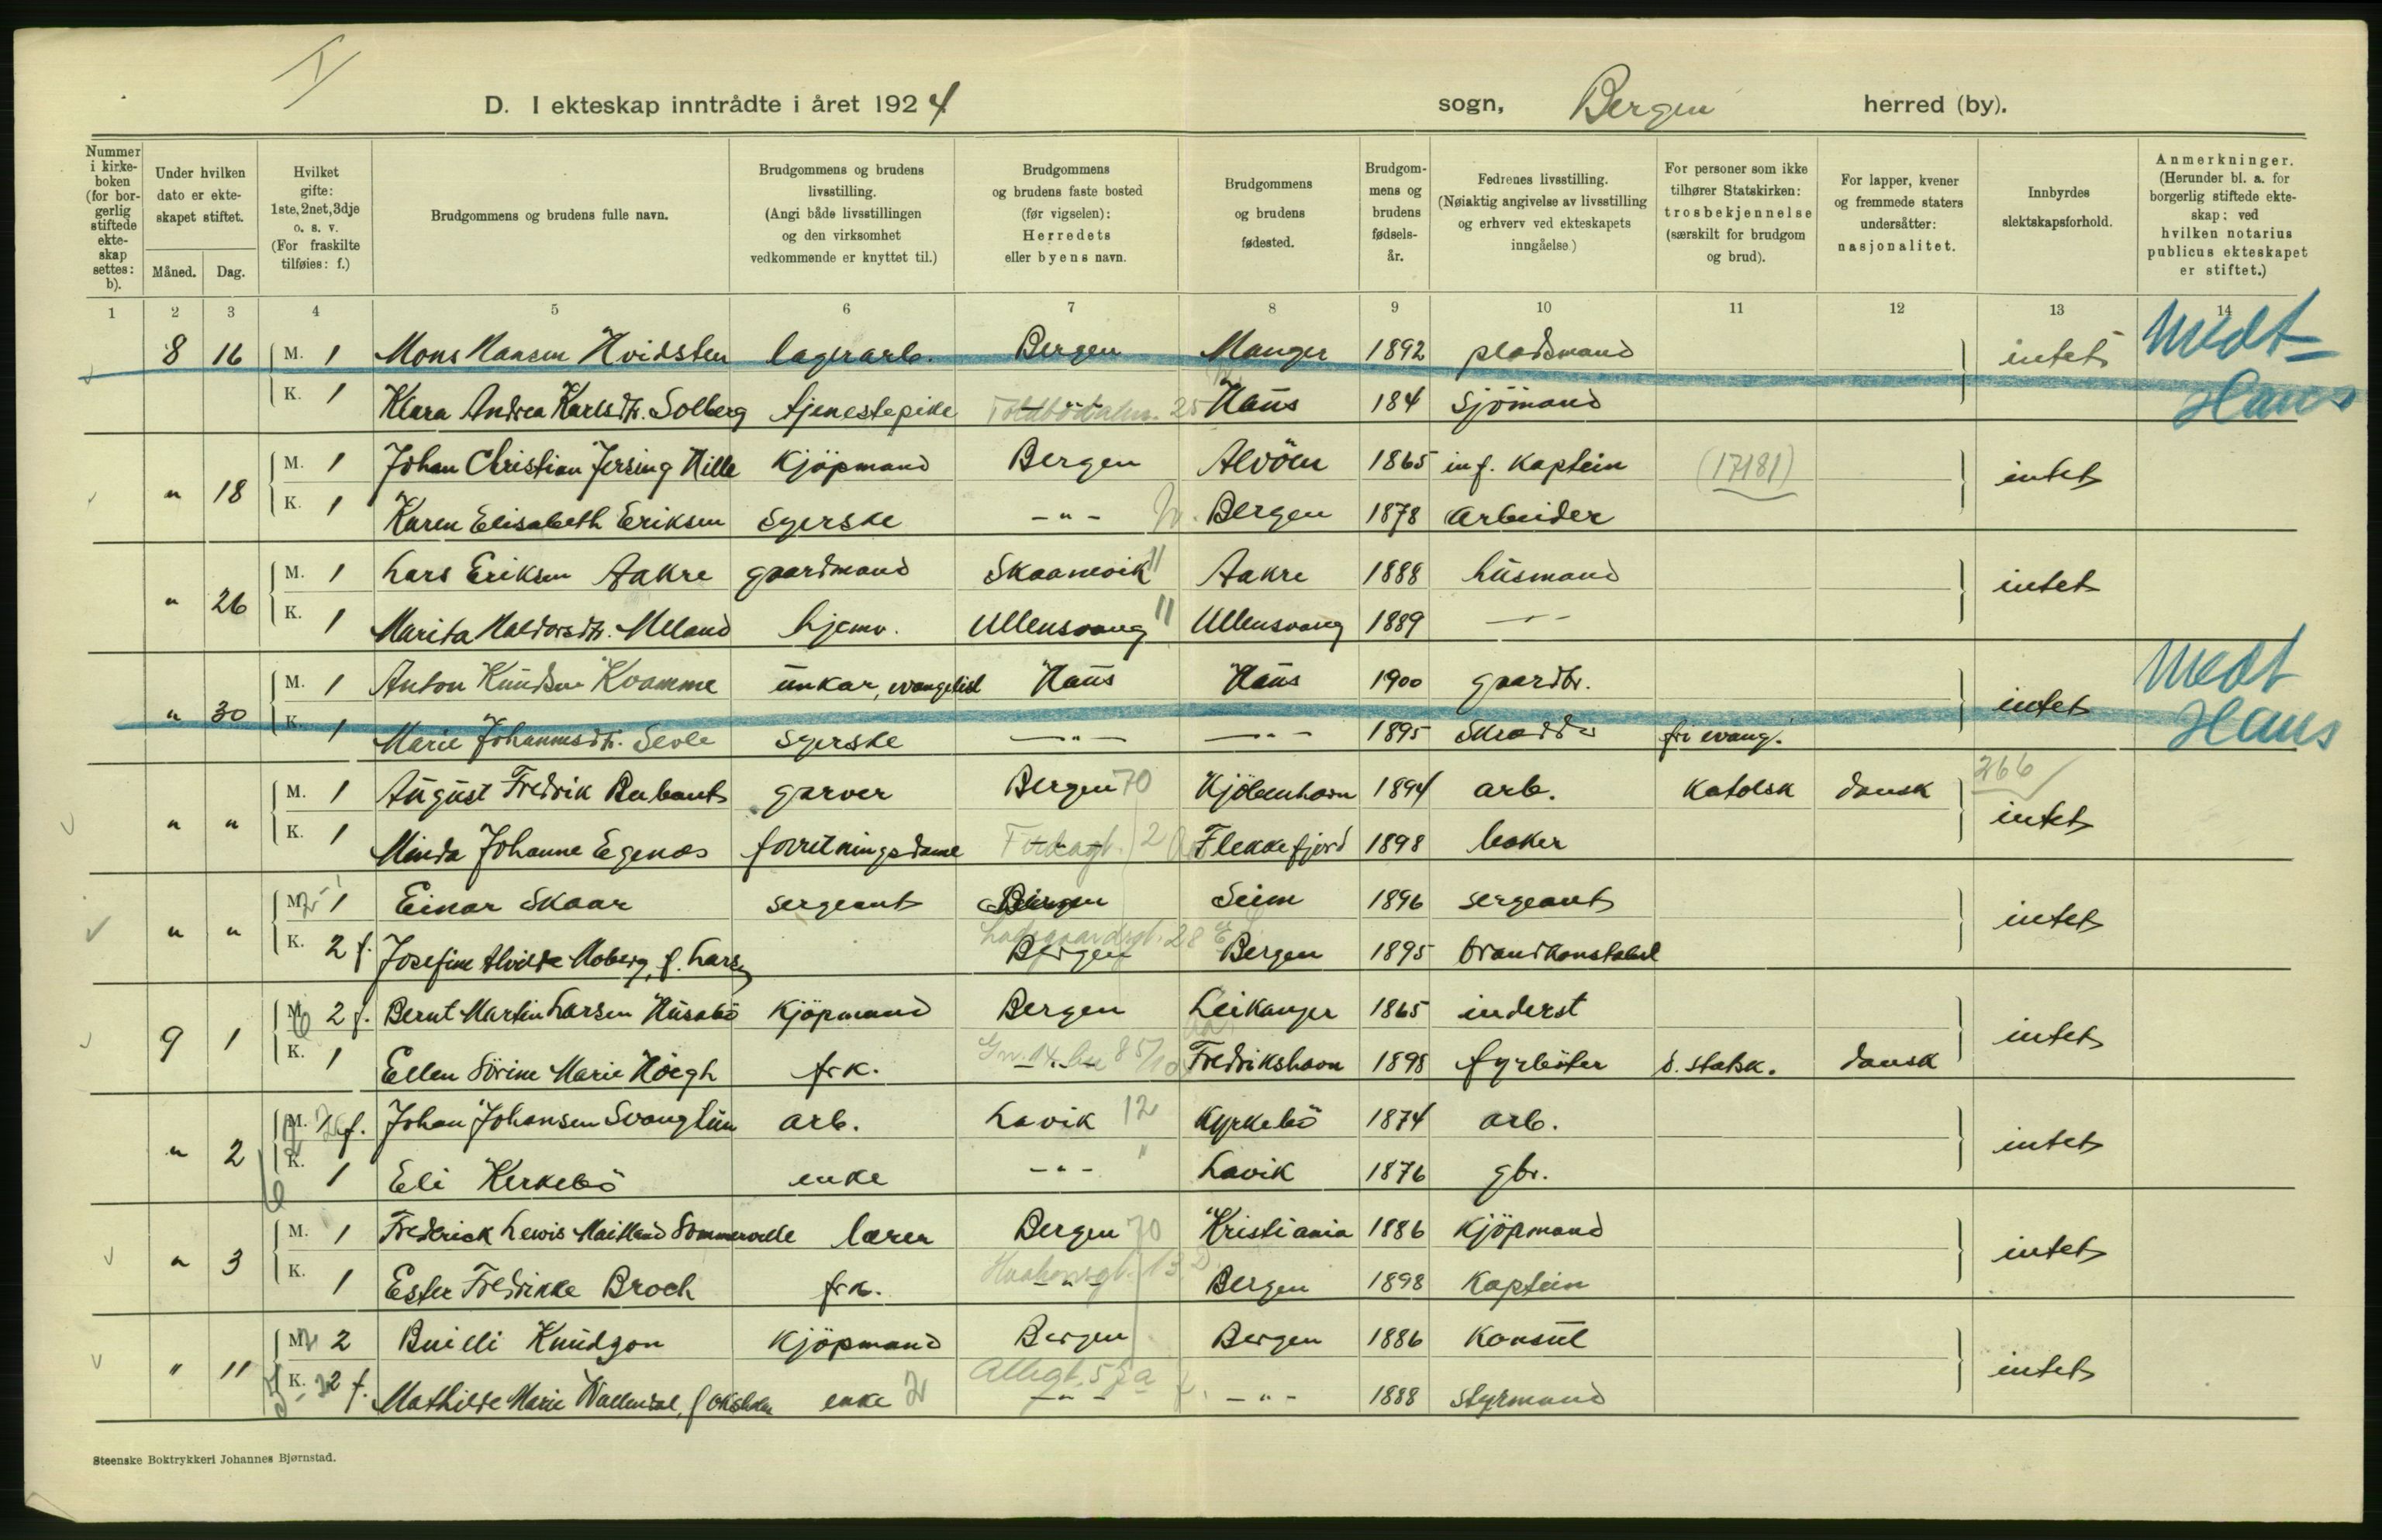 D. I ekteskap inntrådte i året 1924 sogn, Bergen herred (by).
Nummer i kirke-boken (for bor-gerlig stiftede ekte-skap settes: b).
Under hvilken dato er ekte-skapet stiftet.
Måned. Dag.
Hvilket gifte: 1ste, 2net, 3dje o. s. v. (For fraskilte tilføies: f.)
Brudgommens og brudens fulle navn.
Brudgommens og brudens livsstilling. (Angi både livsstillingen og den virksomhet vedkommende er knyttet til.)
Brudgommens og brudens faste bosted (før vigselen): Herredets eller byens navn.
Brudgommens og brudens fødested.
Brudgom-mens og brudens fødsels-år.
Fedrenes livsstilling. (Nøiaktig angivelse av livsstilling og erhverv ved ekteskapets inngåelse.)
For personer som ikke tilhører Statskirken: trosbekjennelse (særskilt for brudgom og brud).
For lapper, kvener og fremmede staters undersåtter: nasjonalitet.
Innbyrdes slektskapsforhold.
Anmerkninger. (Herunder bl. a. for borgerlig stiftede ekte-skap: ved hvilken notarius publicus ekteskapet er stiftet.)
1 2 3 4 5 6 7 8 9 10 11 12 13 14
8 16 M. 1 Mons Hansen Hvidsten lagerarb. Bergen Manger 1892 pladsmand intet Medt
K. 1 Klara Andrea Karlsdtr. Solberg tjenestepike Haus 184 Sjömand Haus
" 18 M. 1 Johan Christian Jersing Hille Kjöpmand Bergen Alvöen 1865 inf. Kaptein (17181) intet
K. 1 Karen Elisabeth Eriksen Syerske - " - Bergen 1878 Arbeider
" 26 M. 1 Lars Eriksen Aakre gaardmand Skaanevik 11 Aakre 1888 húsmand intet
K. 1 Marita Haldorsdtr. Meland hjemv. Ullensvang 11 Ullensvang 1889 - " -
" 30 M. 1 Anton Knudsen Kvamme unkar, evangelist Haus Haus 1900 gaardbr. intet Medt
K. 1 Marie Johannesdtr. Sevle Syerske - " - - " - 1895 Skrædder fri evang. Haus
" " M. 1 August Fredrik Bubant garver Bergen 70 Kjöbenhavn 1894 arb. Katolsk dansk 266 intet
K. 1 Minda Johanne Egenæs forretningsdame Flekkefjord 1898 baker
" " M. 1 Einar Skaar sergeant Bergen Seim 1896 sergeant intet
K. 2 f. Josefine Alvilde Moberg, f. Larsen Ladegaardsgt. 28 Bergen Bergen 1895 brandkonstabel
9 1 M. 2 f. Bernt Martin Larsen Húsabö Kjöpmand Bergen Leikanger 1865 inderst intet
K. 1 Ellen Sörine Marie Höegh frk. Fredrikshavn 1898 fyrböter d. statsk. dansk
" 2 M. f. Johan Johansen Svangtun arb. Lavik 12 Kyrkebö 1874 arb. intet
K. 1 Eli Kerkebö enke - " - Lavik 1876 gbr.
" 3 M. 1 Frederick Lewis Maitland Sommerville lærer Bergen 70 Kristiania 1886 Kjöpmand intet
K. 1 Ester Fredrikke Broch frk. Haakonsgt. 13 - " - Bergen 1898 Kaptein
" 11 M. 2 Knudzon Kjöpmand Bergen Bergen 1886 Konsul intet
K. 2 f. Mathilde Marie enke 2 Allegt. - " - - " - 1888 styrmand
Steenske Boktrykkeri Johannes Bjørnstad.